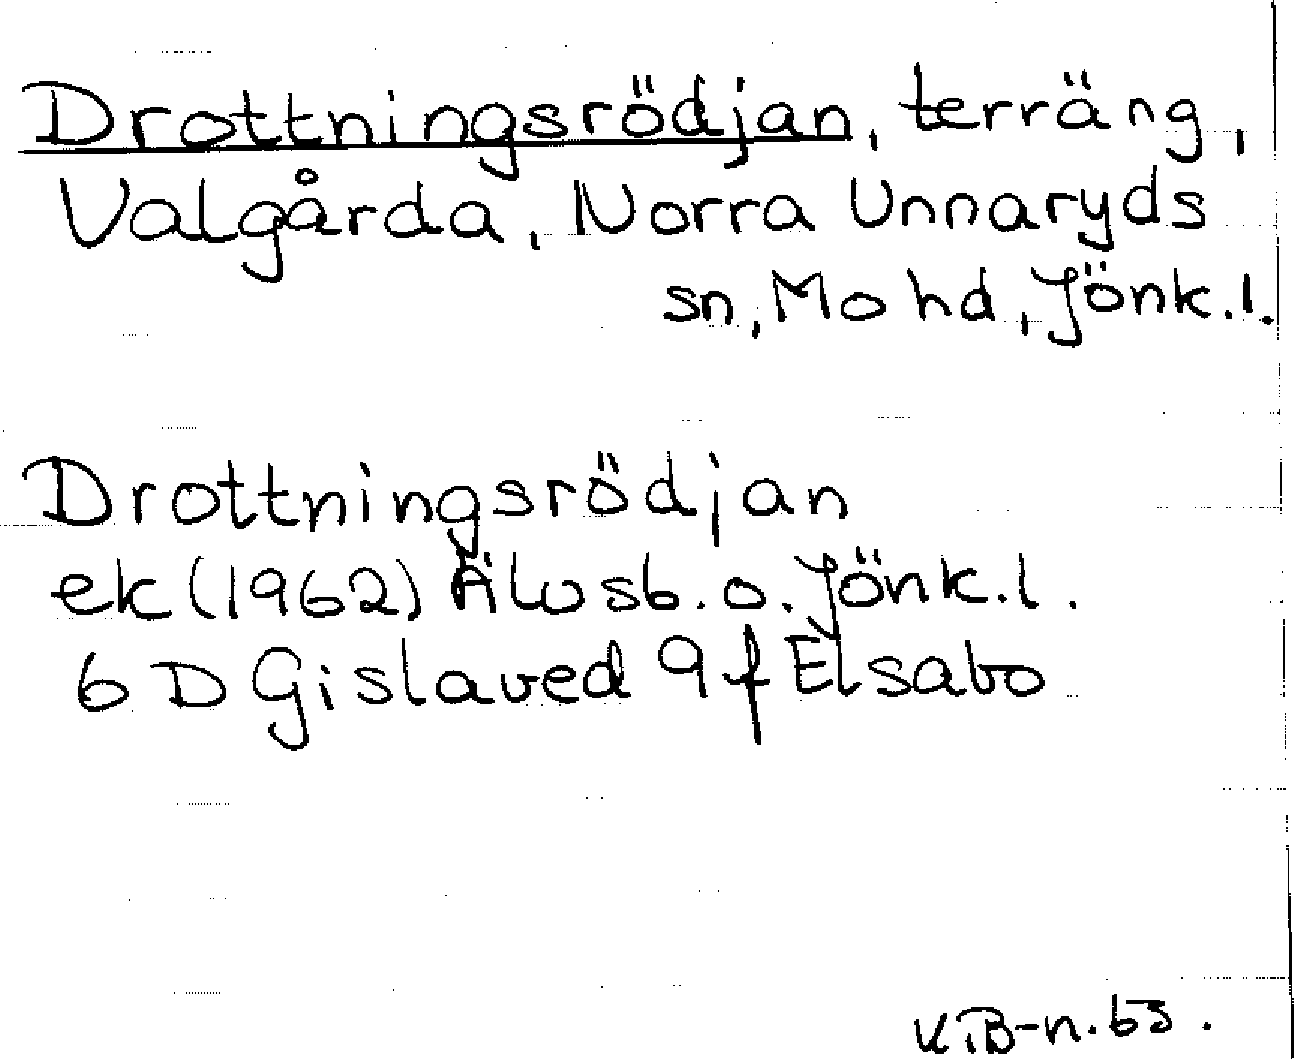 Drottningsrödjan, terräng,
Valgårda, Norra Unnaryds
sn, Mo hd, Jönk.l.
Drottningsrödjan
ek (1962) Älvsb. o. Jönk.l.
6D Gislaved 9f Elsabo